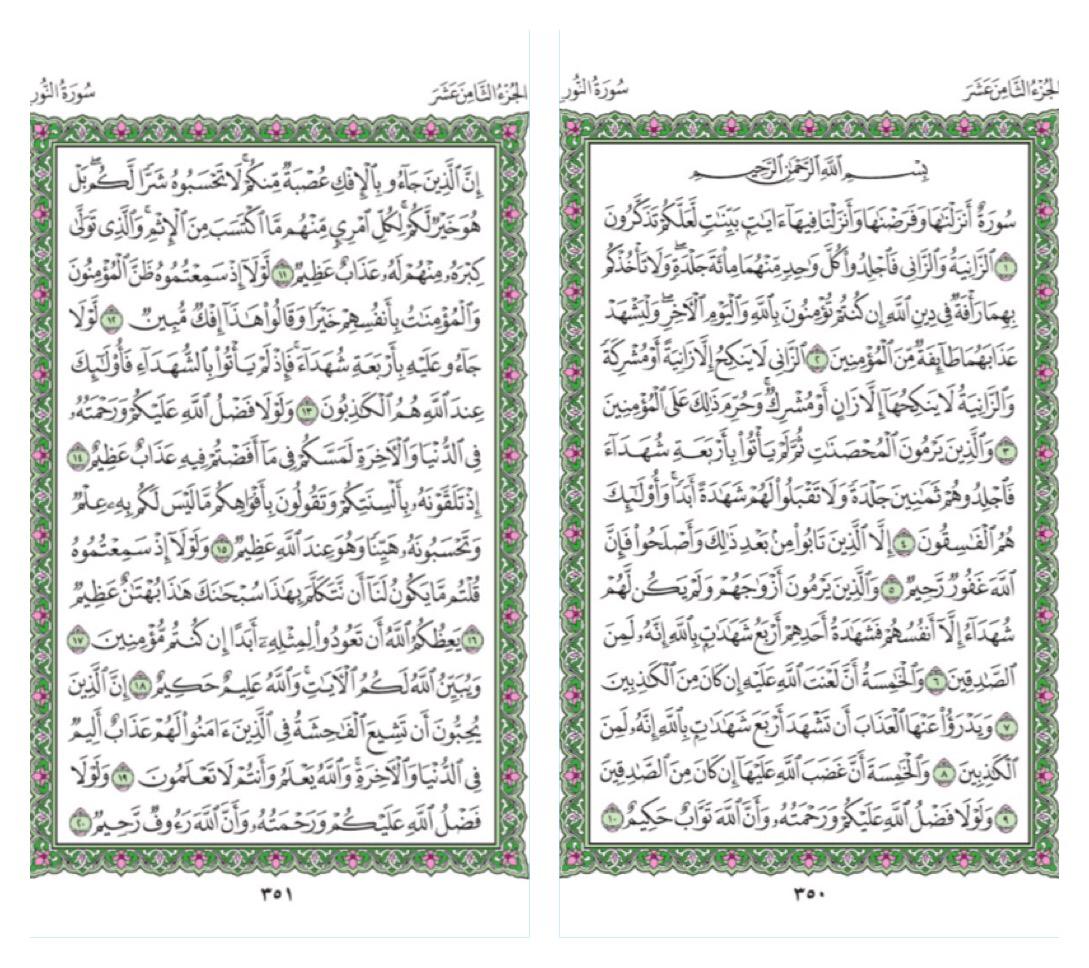 الجُزْءُ الثَّامِنَ عَشَرَ
سُورَةُ النُّورِ
بِسْمِ ٱللَّهِ ٱلرَّحْمَٰنِ ٱلرَّحِيمِ
سُورَةٌ أَنزَلْنَٰهَا وَفَرَضْنَٰهَا وَأَنزَلْنَا فِيهَآ ءَايَٰتٍۭ بَيِّنَٰتٍ لَّعَلَّكُمْ تَذَكَّرُونَ
١ ٱلزَّانِيَةُ وَٱلزَّانِى فَٱجْلِدُوا۟ كُلَّ وَٰحِدٍ مِّنْهُمَا مِا۟ئَةَ جَلْدَةٍ ۖ وَلَا تَأْخُذْكُم
بِهِمَا رَأْفَةٌ فِى دِينِ ٱللَّهِ إِن كُنتُمْ تُؤْمِنُونَ بِٱللَّهِ وَٱلْيَوْمِ ٱلْـَٔاخِرِ ۖ وَلْيَشْهَدْ
عَذَابَهُمَا طَآئِفَةٌ مِّنَ ٱلْمُؤْمِنِينَ ٢ ٱلزَّانِى لَا يَنكِحُ إِلَّا زَانِيَةً أَوْ مُشْرِكَةً
وَٱلزَّانِيَةُ لَا يَنكِحُهَآ إِلَّا زَانٍ أَوْ مُشْرِكٌ ۚ وَحُرِّمَ ذَٰلِكَ عَلَى ٱلْمُؤْمِنِينَ
٣ وَٱلَّذِينَ يَرْمُونَ ٱلْمُحْصَنَٰتِ ثُمَّ لَمْ يَأْتُوا۟ بِأَرْبَعَةِ شُهَدَآءَ
فَٱجْلِدُوهُمْ ثَمَٰنِينَ جَلْدَةً وَلَا تَقْبَلُوا۟ لَهُمْ شَهَٰدَةً أَبَدًا ۚ وَأُو۟لَٰٓئِكَ
هُمُ ٱلْفَٰسِقُونَ ٤ إِلَّا ٱلَّذِينَ تَابُوا۟ مِنۢ بَعْدِ ذَٰلِكَ وَأَصْلَحُوا۟ فَإِنَّ
ٱللَّهَ غَفُورٌ رَّحِيمٌ ٥ وَٱلَّذِينَ يَرْمُونَ أَزْوَٰجَهُمْ وَلَمْ يَكُن لَّهُمْ
شُهَدَآءُ إِلَّآ أَنفُسُهُمْ فَشَهَٰدَةُ أَحَدِهِمْ أَرْبَعُ شَهَٰدَٰتٍۭ بِٱللَّهِ ۙ إِنَّهُۥ لَمِنَ
ٱلصَّٰدِقِينَ ٦ وَٱلْخَٰمِسَةُ أَنَّ لَعْنَتَ ٱللَّهِ عَلَيْهِ إِن كَانَ مِنَ ٱلْكَٰذِبِينَ
٧ وَيَدْرَؤُا۟ عَنْهَا ٱلْعَذَابَ أَن تَشْهَدَ أَرْبَعَ شَهَٰدَٰتٍۭ بِٱللَّهِ ۙ إِنَّهُۥ لَمِنَ
ٱلْكَٰذِبِينَ ٨ وَٱلْخَٰمِسَةَ أَنَّ غَضَبَ ٱللَّهِ عَلَيْهَآ إِن كَانَ مِنَ ٱلصَّٰدِقِينَ
٩ وَلَوْلَا فَضْلُ ٱللَّهِ عَلَيْكُمْ وَرَحْمَتُهُۥ وَأَنَّ ٱللَّهَ تَوَّابٌ حَكِيمٌ ١٠
٣٥٠
الجُزْءُ الثَّامِنَ عَشَرَ
سُورَةُ النُّورِ
إِنَّ ٱلَّذِينَ جَآءُو بِٱلْإِفْكِ عُصْبَةٌ مِّنكُمْ ۚ لَا تَحْسَبُوهُ شَرًّا لَّكُم ۖ بَلْ
هُوَ خَيْرٌ لَّكُمْ ۚ لِكُلِّ ٱمْرِئٍ مِّنْهُم مَّا ٱكْتَسَبَ مِنَ ٱلْإِثْمِ ۚ وَٱلَّذِى تَوَلَّىٰ
كِبْرَهُۥ مِنْهُمْ لَهُۥ عَذَابٌ عَظِيمٌ ١١ لَّوْلَآ إِذْ سَمِعْتُمُوهُ ظَنَّ ٱلْمُؤْمِنُونَ
وَٱلْمُؤْمِنَٰتُ بِأَنفُسِهِمْ خَيْرًا وَقَالُوا۟ هَٰذَآ إِفْكٌ مُّبِينٌ ١٢ لَّوْلَا
جَآءُو عَلَيْهِ بِأَرْبَعَةِ شُهَدَآءَ ۚ فَإِذْ لَمْ يَأْتُوا۟ بِٱلشُّهَدَآءِ فَأُو۟لَٰٓئِكَ
عِندَ ٱللَّهِ هُمُ ٱلْكَٰذِبُونَ ١٣ وَلَوْلَا فَضْلُ ٱللَّهِ عَلَيْكُمْ وَرَحْمَتُهُۥ
فِى ٱلدُّنْيَا وَٱلْـَٔاخِرَةِ لَمَسَّكُمْ فِى مَآ أَفَضْتُمْ فِيهِ عَذَابٌ عَظِيمٌ ١٤
إِذْ تَلَقَّوْنَهُۥ بِأَلْسِنَتِكُمْ وَتَقُولُونَ بِأَفْوَاهِكُم مَّا لَيْسَ لَكُم بِهِۦ عِلْمٌ
وَتَحْسَبُونَهُۥ هَيِّنًا وَهُوَ عِندَ ٱللَّهِ عَظِيمٌ ١٥ وَلَوْلَآ إِذْ سَمِعْتُمُوهُ
قُلْتُم مَّا يَكُونُ لَنَآ أَن نَّتَكَلَّمَ بِهَٰذَا سُبْحَٰنَكَ هَٰذَا بُهْتَٰنٌ عَظِيمٌ
١٦ يَعِظُكُمُ ٱللَّهُ أَن تَعُودُوا۟ لِمِثْلِهِۦٓ أَبَدًا إِن كُنتُم مُّؤْمِنِينَ ١٧
وَيُبَيِّنُ ٱللَّهُ لَكُمُ ٱلْـَٔايَٰتِ ۚ وَٱللَّهُ عَلِيمٌ حَكِيمٌ ١٨ إِنَّ ٱلَّذِينَ
يُحِبُّونَ أَن تَشِيعَ ٱلْفَٰحِشَةُ فِى ٱلَّذِينَ ءَامَنُوا۟ لَهُمْ عَذَابٌ أَلِيمٌ
فِى ٱلدُّنْيَا وَٱلْـَٔاخِرَةِ ۚ وَٱللَّهُ يَعْلَمُ وَأَنتُمْ لَا تَعْلَمُونَ ١٩ وَلَوْلَا
فَضْلُ ٱللَّهِ عَلَيْكُمْ وَرَحْمَتُهُۥ وَأَنَّ ٱللَّهَ رَءُوفٌ رَّحِيمٌ ٢٠
٣٥١